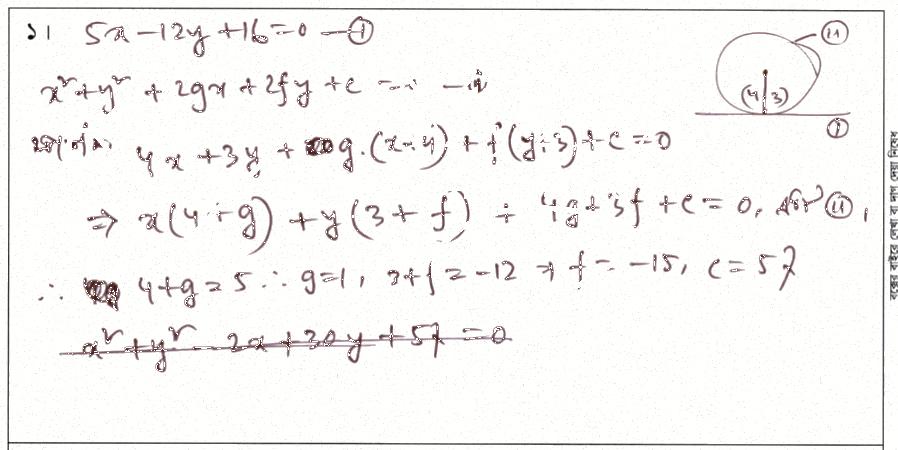 ১। 5x - 12y + 16 = 0 — ①
(ii)
x² + y² + 2gx + 2fy + c = 0 — ii
(4, 3)
①
4x + 3y + g.(x+4) + f(y+3) + c = 0
⇒ x(4+g) + y(3+f) + 4g + 3f + c = 0, (ii),
∴ 4+g = 5 ∴ g=1, 3+f = -12 ⇒ f = -15, c = 57
x² + y² - 2x + 30y + 57 = 0
বক্সের বাইরে লেখা বা দাগ দেয়া নিষেধ